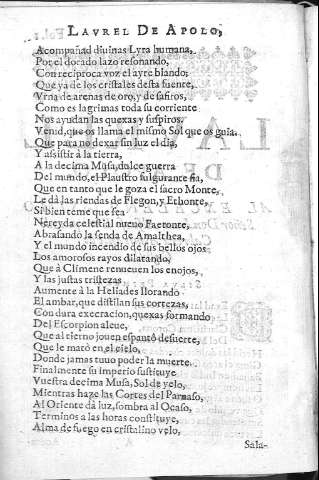 LAVREL DE APOLO,
Acompañad diuinas Lyra humana,
Por el dorado lazo resonando,
Con reciproca voz el ayre blando:
Que ya de los cristales desta fuente,
Vrna de arenas de oro, y de safiros,
Como es lagrimas toda su corriente
Nos ayudan las quexas y suspiros.
Venid, que os llama el mismo Sol que os guia.
Que para no dexar sin luz el dia,
Y assistir à la tierra,
A la decima Musa, dulce guerra
Del mundo, el Plaustro fulgurante fia,
Que en tanto que le goza el sacro Monte,
Le dà las riendas de Flegon, y Ethonte,
Si bien teme que sea
Nereyda celestial nueuo Faetonte,
Abrasando la senda de Amalthea,
Y el mundo incendio de sus bellos ojos
Los amorosos rayos dilatando,
Que à Climene renueuen los enojos,
Y las justas tristezas
Aumente à la Heliades llorando
El ambar, que distilan sus cortezas,
Con dura execracion, quexas formando
Del Escorpion aleue,
Que al tierno jouen espantò de suerte,
Que le matò en el cielo,
Donde jamas tuuo poder la muerte.
Finalmente su imperio sustituye
Vuestra decima Musa, Sol de yelo,
Mientras haze las Cortes del Parnaso,
Al Oriente dà luz, sombra al Ocaso,
Terminos a las horas constituye,
Alma de fuego en cristalino velo,
Sala-